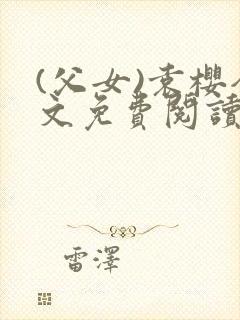 (父女)袁櫻
文免費閱讀
雷澤